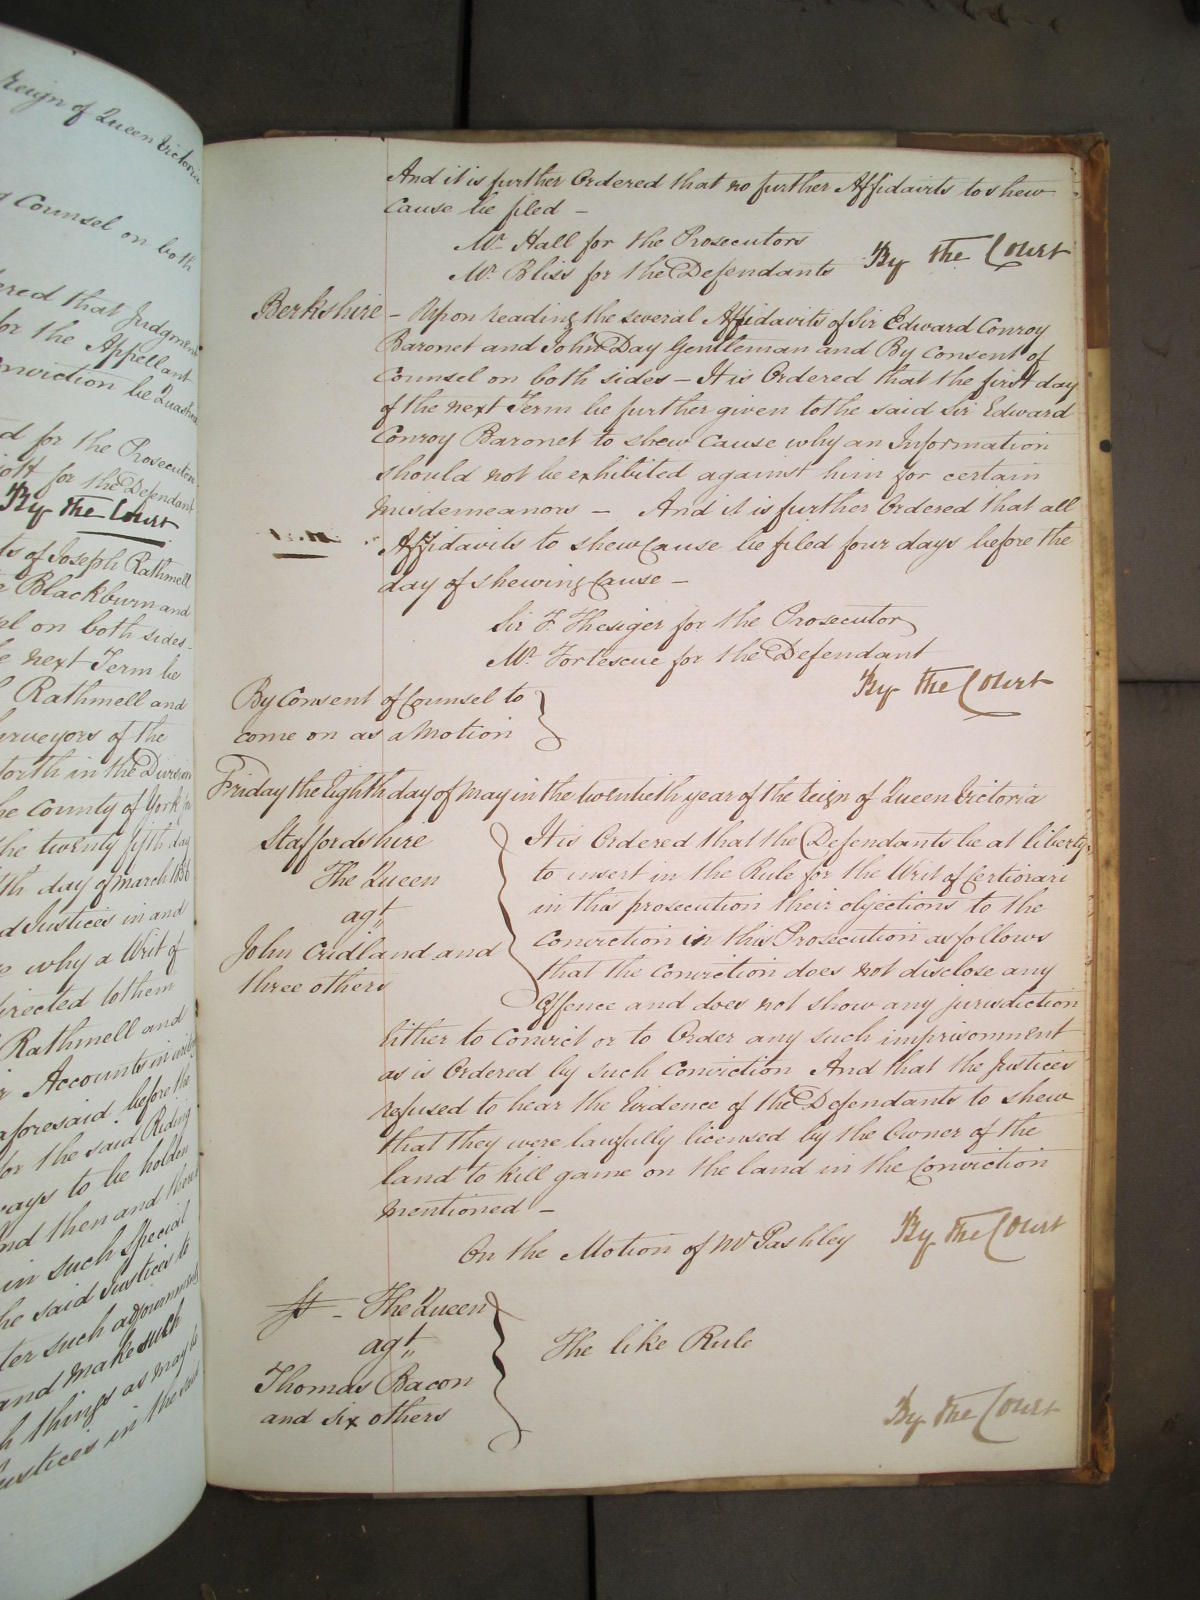 Reign of Queen Victoria
Counsel on both
ered that Judgment
for the Appellant
onviction be Quashed
d for the Prosecutor
for the Defendant
By the Court
ts of Joseph Rathmell
Blackburn and
el on both sides
next Term be
Rathmell and
urveyors of the
forth in the Division
he County of York
the twenty fifth day
th day of March 1856
d Justices in and
why a Writ of
irected to them
Rathmell and
Accounts in
aforesaid before the
for the said Riding
ways to be holden
nd then and there
in such special
he said Justices to
ter such adjournment
and make such
h things as may
ustices in the
And it is further Ordered that no further Affidavits to shew
Cause be filed –
Mr. Hall for the Prosecutors
Mr. Bliss for the Defendants By the Court
Berkshire – Upon reading the several Affidavits of Sir Edward Conroy
Baronet and John Day Gentleman and By Consent of
Counsel on both sides – It is Ordered that the first day
of the next Term be further given to the said Sir Edward
Conroy Baronet to shew Cause why an Information
should not be exhibited against him for certain
misdemeanors – And it is further Ordered that all
Affidavits to shew Cause be filed four days before the
day of shewing Cause –
Sir F. Thesiger for the Prosecutor
Mr. Fortescue for the Defendant
By the Court
By Consent of Counsel to
come on as a Motion
Friday the Eighth day of May in the twentieth year of the Reign of Queen Victoria
Staffordshire
The Queen
agt.
John Cridland and
three others
It is Ordered that the Defendants be at liberty
to insert in the Rule for the Writ of Certiorari
in this prosecution their objections to the
Conviction in this Prosecution as follows
that the Conviction does not disclose any
Offence and does not show any jurisdiction
Either to Convict or to Order any such imprisonment
as is Ordered by such Conviction And that the Justices
refused to hear the Evidence of the Defendants to shew
that they were lawfully licensed by the Owner of the
land to kill game on the land in the Conviction
mentioned –
On the Motion of Mr Pashley By the Court
St – The Queen
agt.
Thomas Bacon
and six others
The like Rule
By the Court